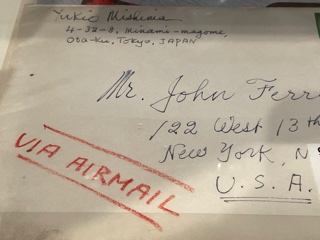 Yukio Mishima
4-32-8, Minami-magome,
Ota-ku, Tokyo, JAPAN
Mr. John Ferr
122 West 13th
New York, N
U.S.A.
VIA AIRMAIL